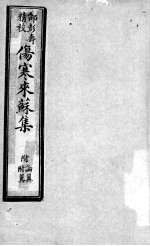 邵彭壽
精校
傷寒來蘇集
論翼
附翼